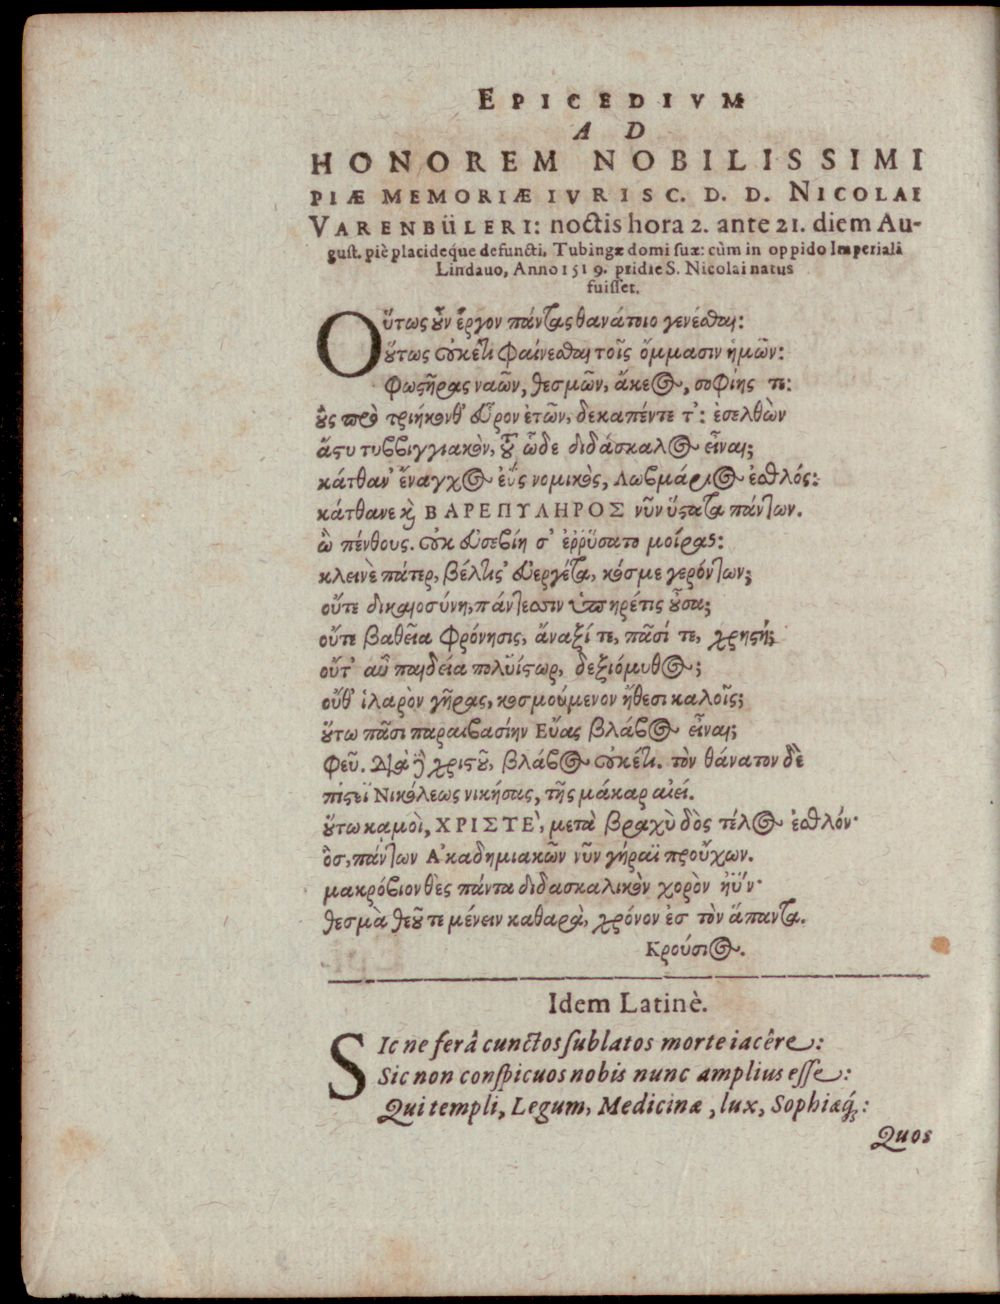 EPICEDIVM
AD
HONOREM NOBILISSIMI
PIÆ MEMORIÆ IVRISC. D. D. NICOLAI
VARENBÜLERI: noctis hora 2. ante 21. diem Au-
gust. piè placideque defuncti, Tubingæ domi suæ: cùm in oppido Imperiali
Lindauo, Anno 1519. pridie S. Nicolai natus
fuisset.
Οὕτως οὖν ἔργον πάντας θανάτοιο γενέσθαι:
οὕτως οὐκέτι φαίνεσθαι τοῖς ὄμμασιν ἡμῶν:
Φωστῆρας ναῶν, θεσμῶν, ἄκεος, σοφίης τε:
οὓς πρὸ τριήκονθ' εὗρον ἐτῶν, δεκαπέντε τ': ἐσελθὼν
ἄστυ τυββιγγιακὸν, τοῦ ὧδε διδάσκαλος εἶναι;
κάτθαν' ἔναγχος ἐῢς νομικὸς, Λωβμάριος ἐσθλός:
κάτθανε καὶ ΒΑΡΕΠΥΛΗΡΟΣ νῦν ὕστατα πάντων.
ὢ πένθους. οὐκ εὐσεβίη σ' ἐῤῥύσατο μοίρας:
κλεινὲ πάτερ, βέλτιστ' εὐεργέτα, κόσμε γερόντων;
οὔτε δικαιοσύνη, πάντεσσιν ὑπηρέτις οὖσα;
οὔτε βαθεῖα φρόνησις, ἄναξί τε, πᾶσί τε, χρηστή;
οὔτ' αὖ παιδεία πολυΐστωρ, δεξιόμυθος;
οὔθ' ἱλαρὸν γῆρας, κοσμούμενον ἤθεσι καλοῖς;
οὕτω πᾶσι παραιβασίην Εὔας βλάβος εἶναι;
φεῦ. Διὰ τοῦ χριστοῦ, βλάβος οὐκέτι. τὸν θάνατον δὲ
πίστεϊ Νικόλεως νικήσας, τῆς μάκαρ αἰεί.
οὕτω καμοὶ, ΧΡΙΣΤΕ', μετὰ βραχὺ δὸς τέλος ἐσθλόν·
ὃς, πάντων Ἀκαδημιακῶν νῦν γήραϊ προὔχων.
μακρόβιον θὲς πάντα διδασκαλικὸν χορὸν ἠΰν·
θεσμὰ θεοῦ τε μένειν καθαρὰ, χρόνον ἐς τὸν ἅπαντα.
Κρούσιος.
Idem Latinè.
SIc ne ferâ cunctos sublatos morte iacêre:
Sic non conspicuos nobis nunc amplius esse:
Qui templi, Legum, Medicinæ, lux, Sophiæq́;:
Quos